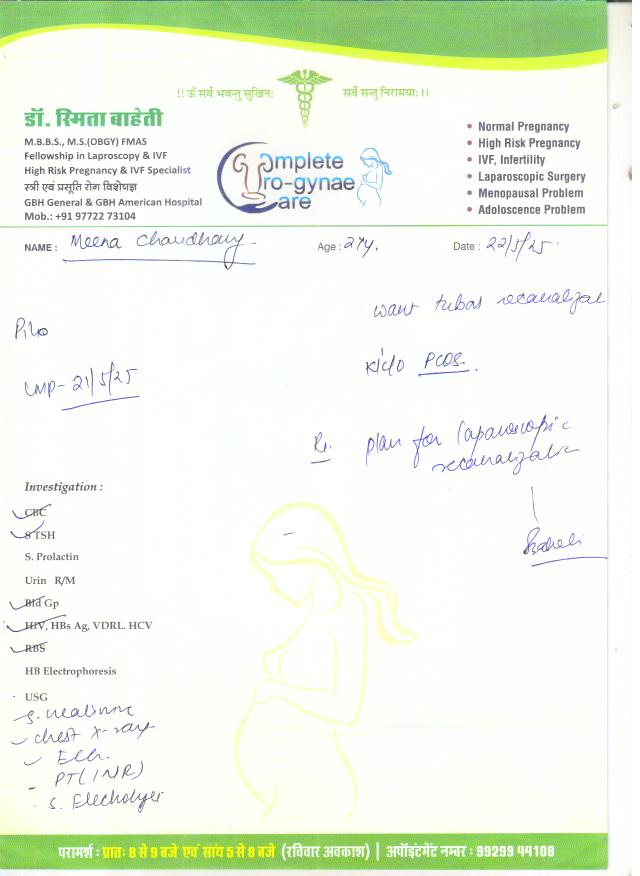 !! ॐ सर्वे भवन्तु सुखिनः सर्वे सन्तु निरामयाः ।।
डॉ. स्मिता बाहेती
M.B.B.S., M.S.(OBGY) FMAS
Fellowship in Laproscopy & IVF
High Risk Pregnancy & IVF Specialist
स्त्री एवं प्रसूति रोग विशेषज्ञ
GBH General & GBH American Hospital
Mob.: +91 97722 73104
Complete
Uro-gynae
Care
• Normal Pregnancy
• High Risk Pregnancy
• IVF, Infertility
• Laparoscopic Surgery
• Menopausal Problem
• Adoloscence Problem
NAME : Meena Chaudhary Age : 27y. Date : 22/5/25
want tubal recanalizat
P1L0
K/c/o PCOS.
LMP- 21/5/25
Rx. plan for laparoscopic
recanalization
Investigation :
CBC
S TSH
S. Prolactin
Urin R/M
Bld Gp
HIV, HBs Ag, VDRL. HCV
RBS
HB Electrophoresis
USG
S. creatinine
chest x-ray
ECG.
PT(INR)
S. Electrolytes
परामर्श : प्रातः 8 से 9 बजे एवं सांय 5 से 8 बजे (रविवार अवकाश) | अपॉइंटमेंट नम्बर : 99299 44108